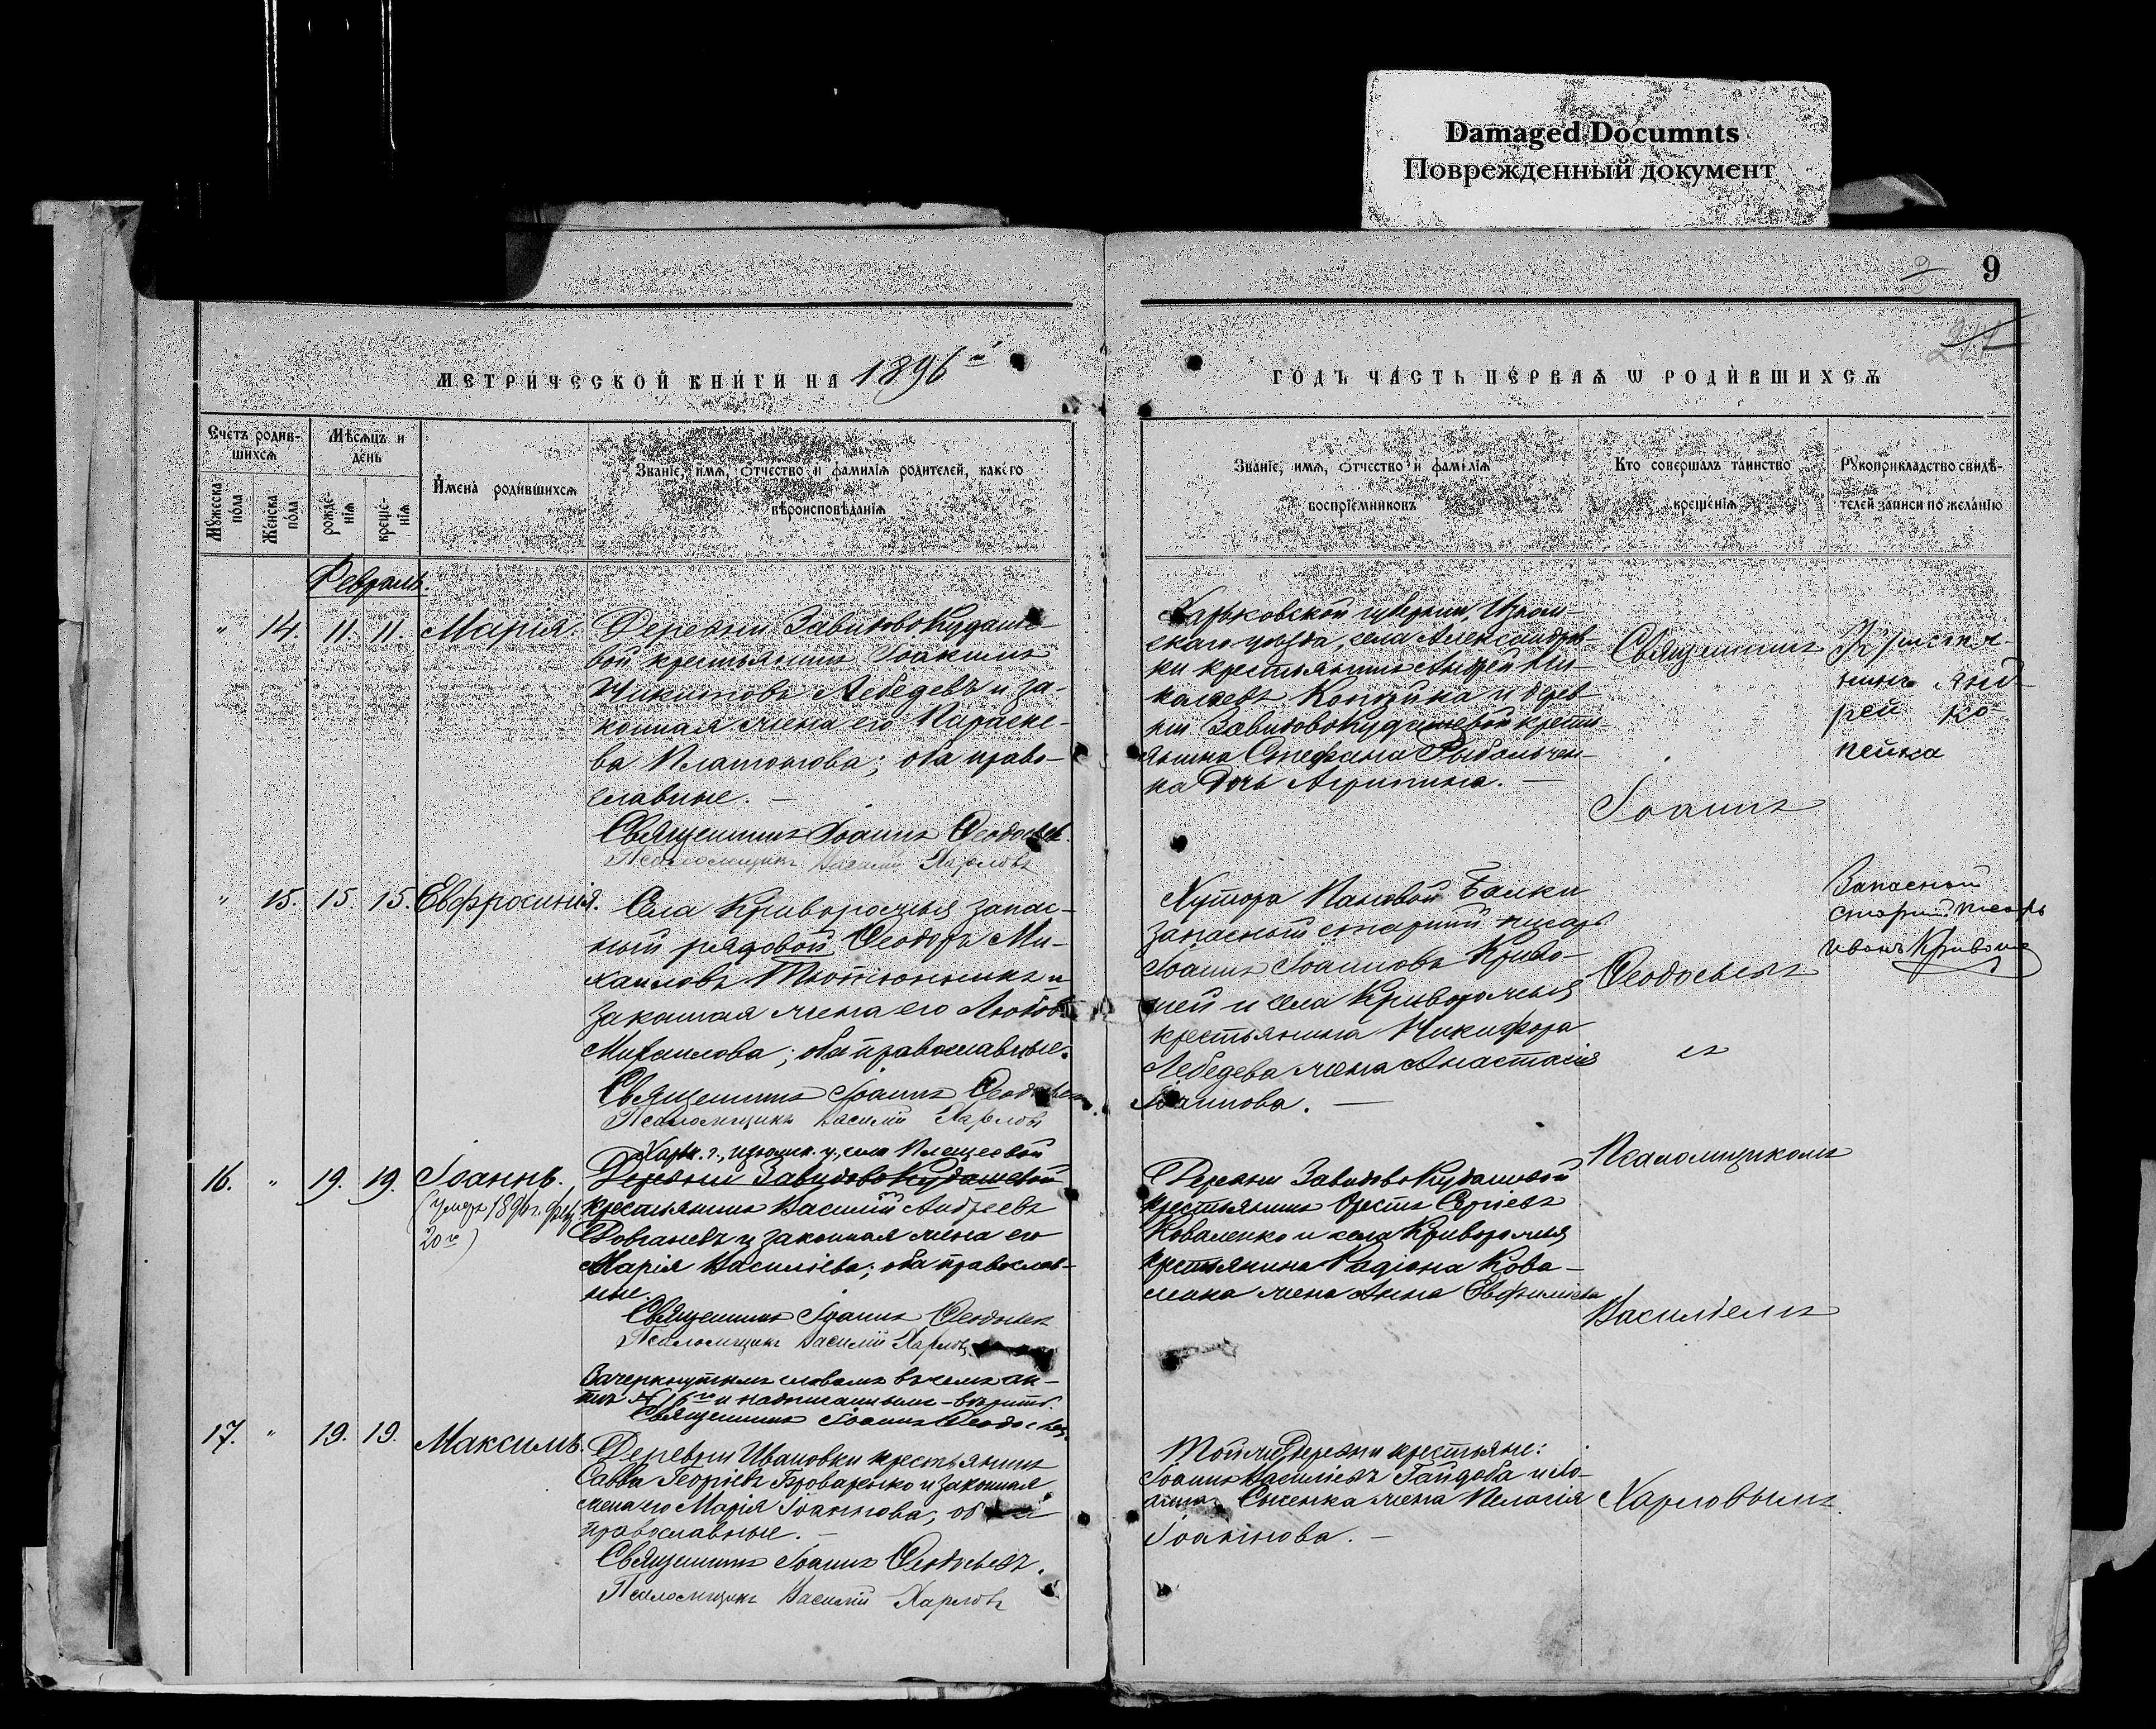 Damaged Documnts
Поврежденный документ
9
9
МЕТРИ́ЧЕСКОЙ КНИ́ГИ НА 1896й
ГО́ДЪ ЧА́СТЬ ПЕ́РВАѦ Ѡ РОДИ́ВШИХСѦ
Счетъ родив-
шихсѧ
Мꙋжеска пола
Же́нска пола
Мѣсѧцъ и
день
рожде́-
нїѧ
креще́-
нїѧ
Имена̀ роди́вшихсѧ
Званїе, имѧ, отчество и фамилїѧ родителей, какого
вѣроисповѣданїѧ
Званїе, имѧ, отчество и фамилїѧ
воспрїемниковъ
Кто совершалъ таинство
крещенїѧ
Рꙋкоприкладство свидѣ-
телей записи по желанїю
Февраль.
" 14. 11. 11. Марія.
Деревни Завидово Кудаше-
вой крестьянинъ Іоакимъ
Никитовъ Лебедевъ и за-
конная жена его Параске-
ва Платонова; оба право-
славные. —
Священникъ Іоаннъ Ѳеодосьевъ.
Псаломщикъ Василій Харловъ
Харьковской губерніи, Изюм-
скаго уѣзда, села Александров-
ки крестьянинъ Андрей Ни-
колаевъ Копѣйка и дерев-
ни Завидово Кудашевой кресть-
янина Стефана Рыбальчен-
ка дочь Агрипина. —
Священникъ
Іоаннъ
Крестья-
нинъ Анд-
рей Ко-
пейка
" 15. 15. 15. Евфросинія.
Села Криворожья запас-
ный рядовой Ѳеодоръ Ми-
хаиловъ Тютюнникъ и
законная жена его Любовь
Михаилова; оба православные.
Священникъ Іоаннъ Ѳеодосьевъ
Псаломщикъ Василій Харловъ
Хутора Пановой Балки
запасный старшій писарь
Іоаннъ Іоанновъ Криво-
шей и села Криворожья
крестьянина Никифора
Лебедева жена Анастасія
Іоаннова. —
Ѳеодосьевъ
съ
Запасный
старшій писарь
Иванъ Кривоше
16. " 19. 19. Іоаннъ.
(умеръ 1896 г. фев.
20го)
Харьк. г., Изюмск. у., села Плещеевой
Деревни Завидово Кудашевой
крестьянинъ Василій Андреевъ
Довганевъ и законная жена его
Марія Василіева; оба православ-
ные.
Священникъ Іоаннъ Ѳеодосьевъ
Псаломщикъ Василій Харловъ
Зачеркнутымъ словамъ въ семъ ак-
тѣ № 16го и надписаннымъ - вѣрить.
Священникъ Іоаннъ Ѳеодосьевъ.
Деревни Завидово Кудашовой
крестьянинъ Орестъ Сергіевъ
Коваленко и села Криворожья
крестьянина Родіона Кова-
лека жена Анна Евфиміева
Псаломщикомъ
Василіемъ
17. " 19. 19. Максимъ.
Деревни Ивановки крестьянинъ
Савва Георгіевъ Проваренко и законная
жена его Марія Іоаннова; оба
православные. —
Священникъ Іоаннъ Ѳеодосьевъ.
Псаломщикъ Василій Харловъ
Той же деревни крестьяне:
Іоаннъ Василіевъ Гайдаба и Іо-
анна жена Пелагія
Іоаннова. —
Харловымъ.